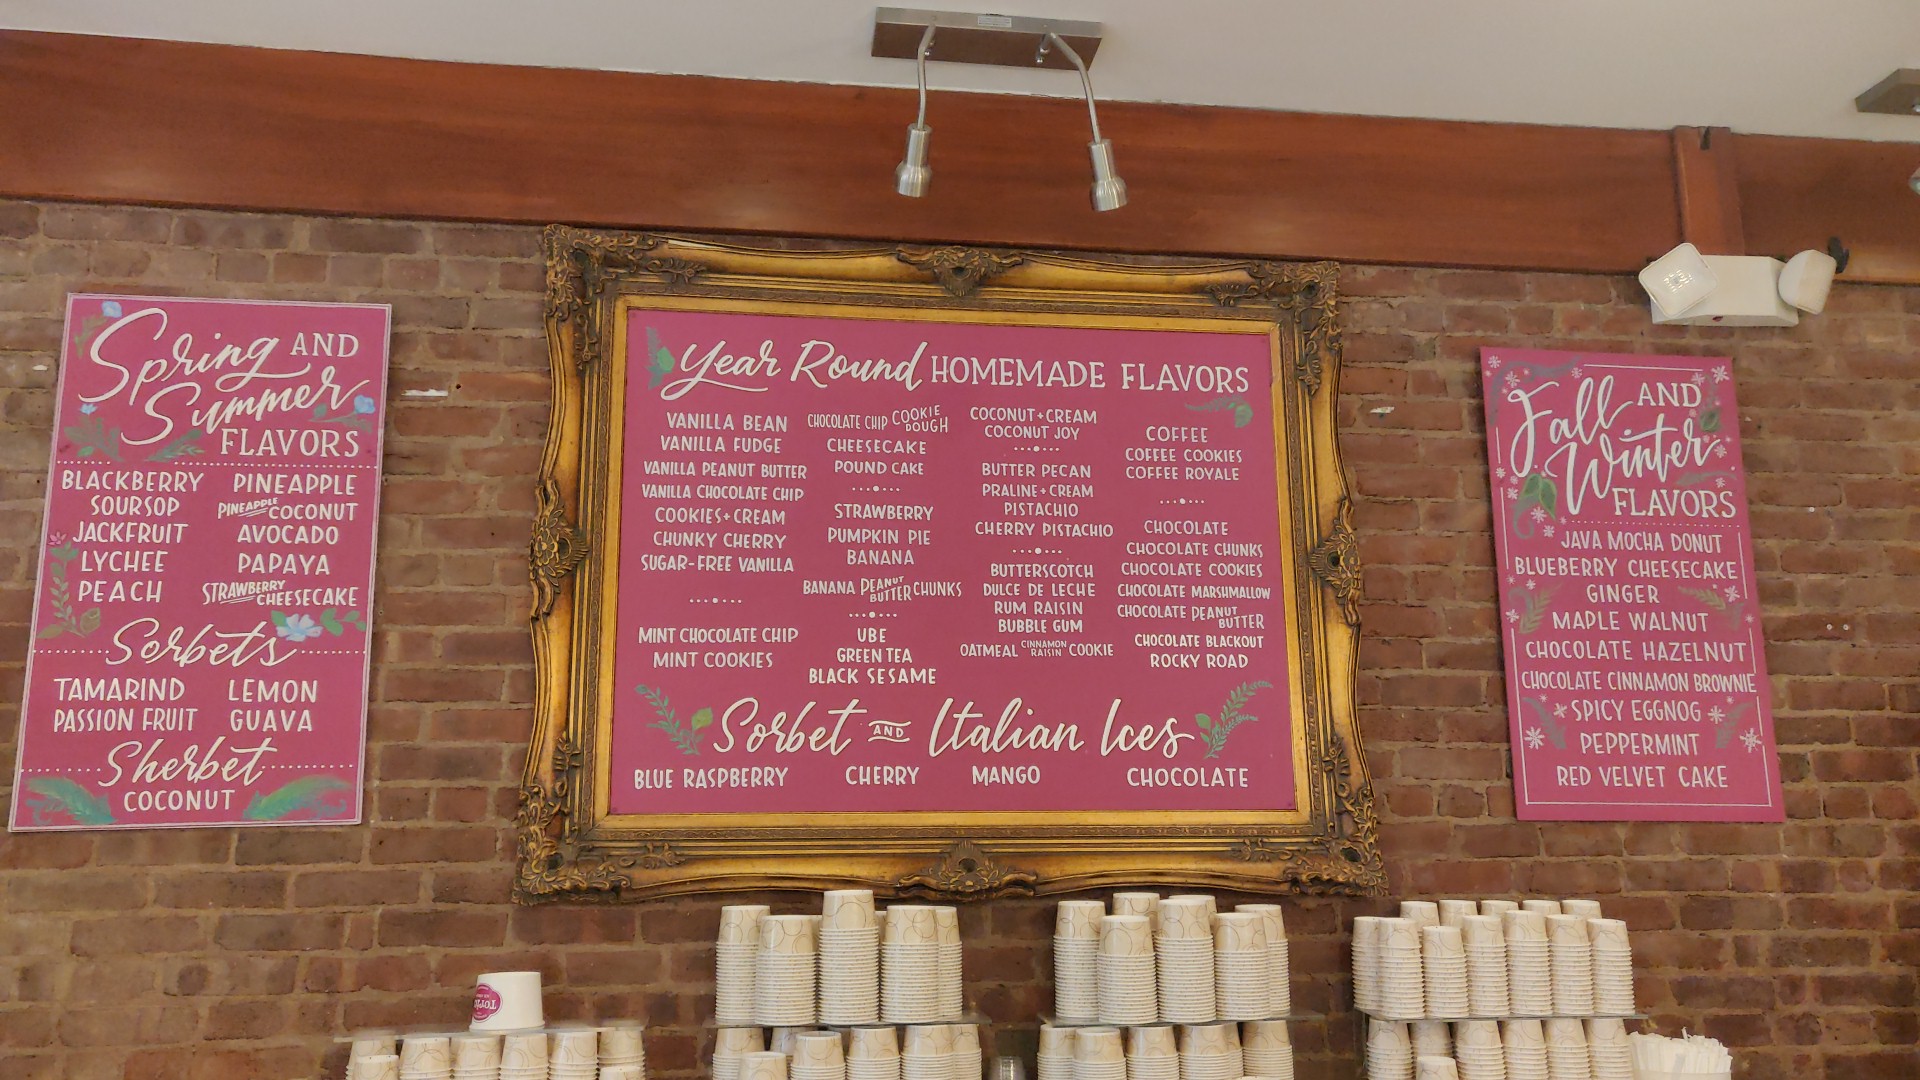 Spring AND
Summer
FLAVORS
BLACKBERRY
SOURSOP
JACKFRUIT
LYCHEE
PEACH
PINEAPPLE
PINEAPPLE COCONUT
AVOCADO
PAPAYA
STRAWBERRY CHEESECAKE
Sorbets
TAMARIND
PASSION FRUIT
LEMON
GUAVA
Sherbet
COCONUT
Year Round HOMEMADE FLAVORS
VANILLA BEAN
VANILLA FUDGE
VANILLA PEANUT BUTTER
VANILLA CHOCOLATE CHIP
COOKIES+CREAM
CHUNKY CHERRY
SUGAR-FREE VANILLA
MINT CHOCOLATE CHIP
MINT COOKIES
CHOCOLATE CHIP COOKIE DOUGH
CHEESECAKE
POUND CAKE
STRAWBERRY
PUMPKIN PIE
BANANA
BANANA PEANUT BUTTER CHUNKS
UBE
GREEN TEA
BLACK SESAME
COCONUT+CREAM
COCONUT JOY
BUTTER PECAN
PRALINE+CREAM
PISTACHIO
CHERRY PISTACHIO
BUTTERSCOTCH
DULCE DE LECHE
RUM RAISIN
BUBBLE GUM
OATMEAL CINNAMON RAISIN COOKIE
COFFEE
COFFEE COOKIES
COFFEE ROYALE
CHOCOLATE
CHOCOLATE CHUNKS
CHOCOLATE COOKIES
CHOCOLATE MARSHMALLOW
CHOCOLATE PEANUT BUTTER
CHOCOLATE BLACKOUT
ROCKY ROAD
Sorbet AND Italian Ices
BLUE RASPBERRY CHERRY MANGO CHOCOLATE
Fall AND
Winter
FLAVORS
JAVA MOCHA DONUT
BLUEBERRY CHEESECAKE
GINGER
MAPLE WALNUT
CHOCOLATE HAZELNUT
CHOCOLATE CINNAMON BROWNIE
SPICY EGGNOG
PEPPERMINT
RED VELVET CAKE